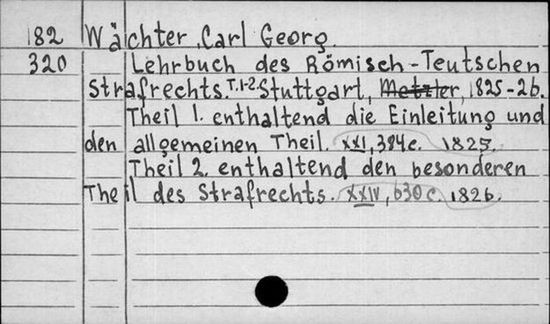 182 Wächter, Carl Georg.
320 Lehrbuch des Römisch-Teutschen
Strafrechts. T.1-2 Stuttgart, Metzler, 1825-26.
Theil 1. enthaltend die Einleitung und
den allgemeinen Theil. XXI, 394c. 1825.
Theil 2. enthaltend den besonderen
Theil des Strafrechts. XXIV, 630 c. 1826.